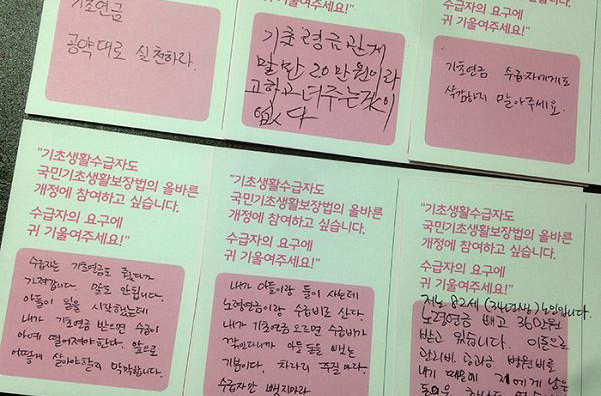 기초연금
공약대로 실천하라.
귀 기울여주세요!"
기초령금관계
말만 20만원이라
고하고 더주는것이
없다
수급자의 요구에
귀 기울여주세요!"
기초연금 수급자에게도
삭감하지 말아주세요.
"기초생활수급자도
국민기초생활보장법의 올바른
개정에 참여하고 싶습니다.
수급자의 요구에
귀 기울여주세요!"
수급자는 기초연금도 줬다가
가져갑니다. 말도 안됩니다.
아들이 일을 시작했는데
내가 기초연금 받으면 수급이
아예 떨어져야한다. 앞으로
어떻게 살아야할지 막막합니다.
"기초생활수급자도
국민기초생활보장법의 올바른
개정에 참여하고 싶습니다.
수급자의 요구에
귀 기울여주세요!"
내가 아들이랑 둘이 사는데
노령연금이랑 수급비로 산다.
내가 기초연금 오르면 수급비가
깍인다니까 아들 돈을 뺏는
기분이다. 차라리 주질 마라.
수급자만 뺏지마라
"기초생활수급자도
국민기초생활보장법의 올바른
개정에 참여하고 싶습니다.
수급자의 요구에
귀 기울여주세요!"
저는 82세 (34년생) 노인입니다.
노령연금 빼고 36만원
받고 있습니다. 이돈으로
관리비 공과금 병원비를
내기 때문에 제에게 남은